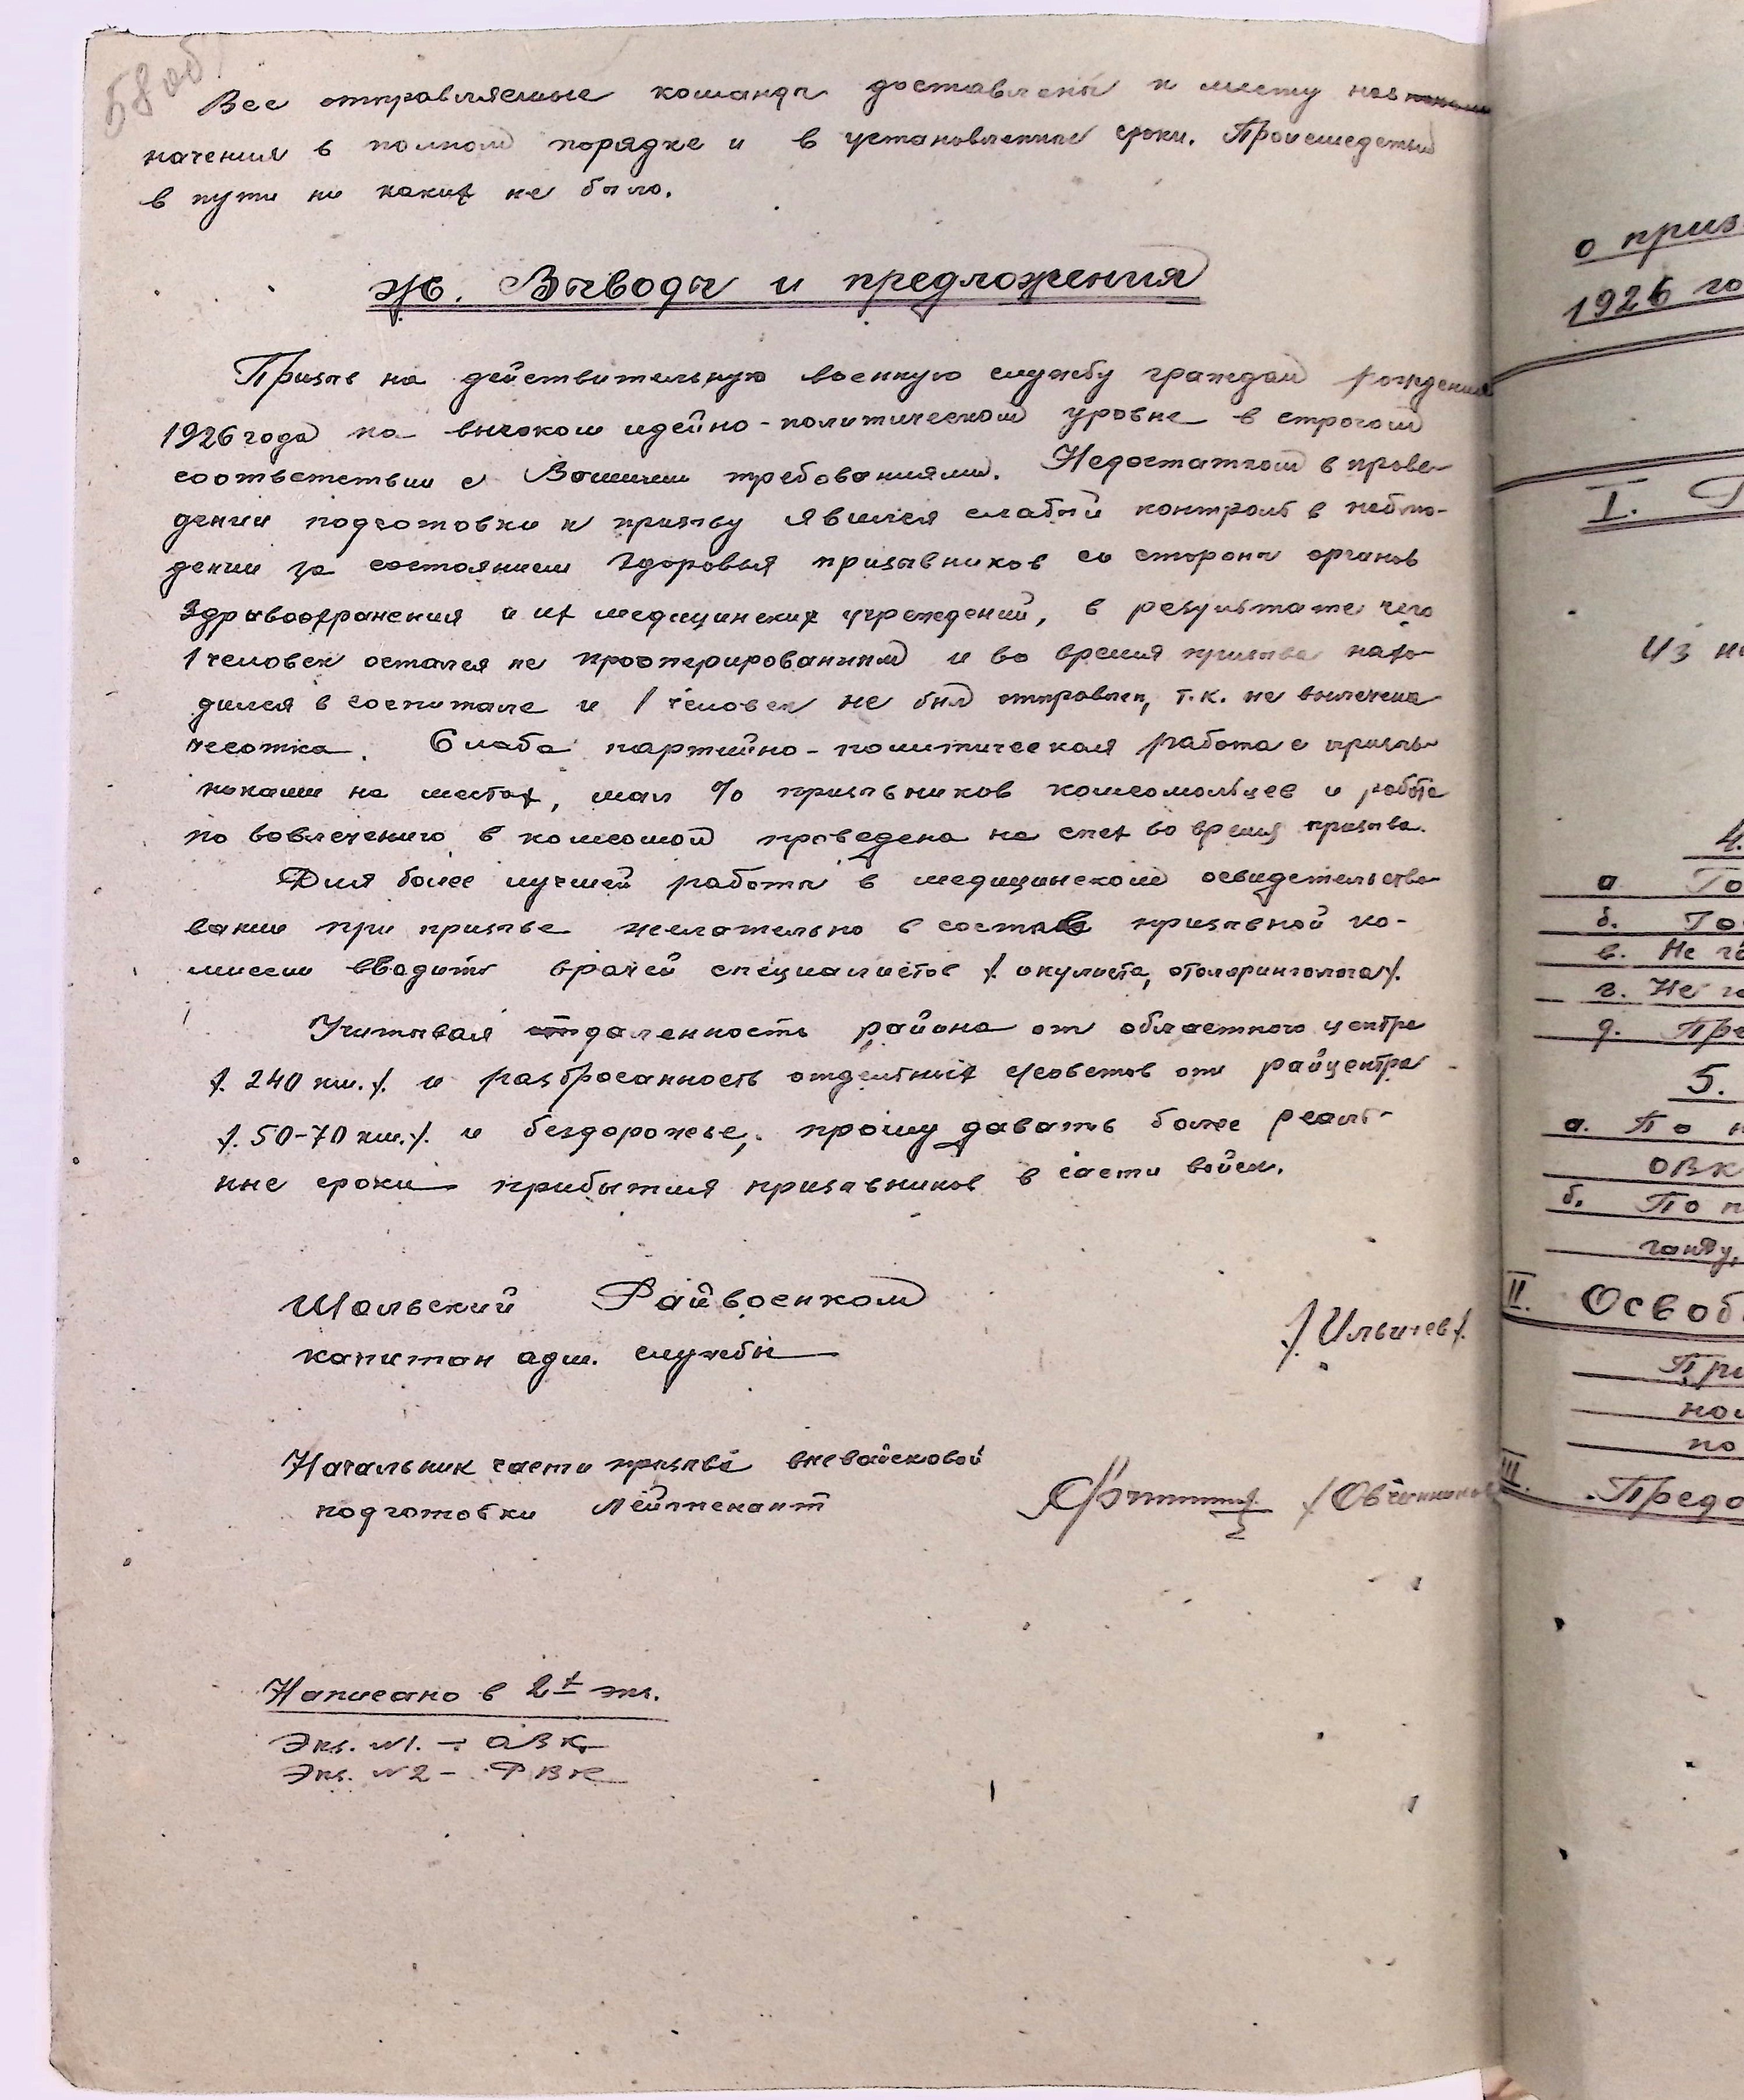 58 об
Все отправляемые команды доставлены к месту наз
начения в полном порядке и в установленные сроки. Происшедствий
в пути ни каких не было.
Ж. Выводы и предложения
Призыв на действительную военную службу граждан рождения
1926 года на высоком идейно-политическом уровне в строгом
соответствии с Вашими требованиями. Недостатком в прове-
дении подготовки к призыву явился слабый контроль в наблю-
дении за состоянием здоровья призывников со стороны органов
Здравоохранения и их медицинских учреждений, в результате чего
1 человек остался не прооперированным и во время призыва нахо-
дился в госпитале и 1 человек не был отправлен, т.к. не вылечена
чесотка. Слаба партийно-политическая работа с призыв-
никами на местах, мал % призывников комсомольцев и работа
по вовлечению в комсомол проведена на спех во время призыва.
Для более лучшей работы в медицинском освидетельство-
вании при призыве желательно в состав призывной ко-
миссии вводить врачей специалистов /. окулиста, отоларинголога /.
Учитывая отдаленность района от областного центра
/. 240 км. /. и разбросанность отдельных с/советов от райцентра
/. 50-70 км. /. и бездорожье, прошу давать более реаль-
ные сроки прибытия призывников в части войск.
Шольский Райвоенком
капитан адм. службы /. Ильичев /.
Начальник части призыва вневойсковой
подготовки Лейтенант /Овчинников
Написано в 2х экз.
Экз. №1. – ОВК
Экз. №2 – РВК
о приз
1926 го
I. Г
Из н
4.
а То
б. Го
в. Не го
г. Не г
д. Пре
5.
а. По н
ОВК
б. По п
ганду,
II. Освоб
При
ном
по
III. Предо